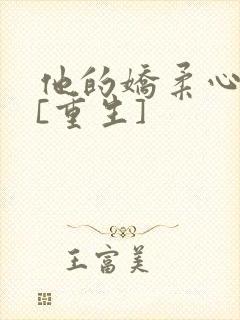 他的娇柔心
[重生]
王富美